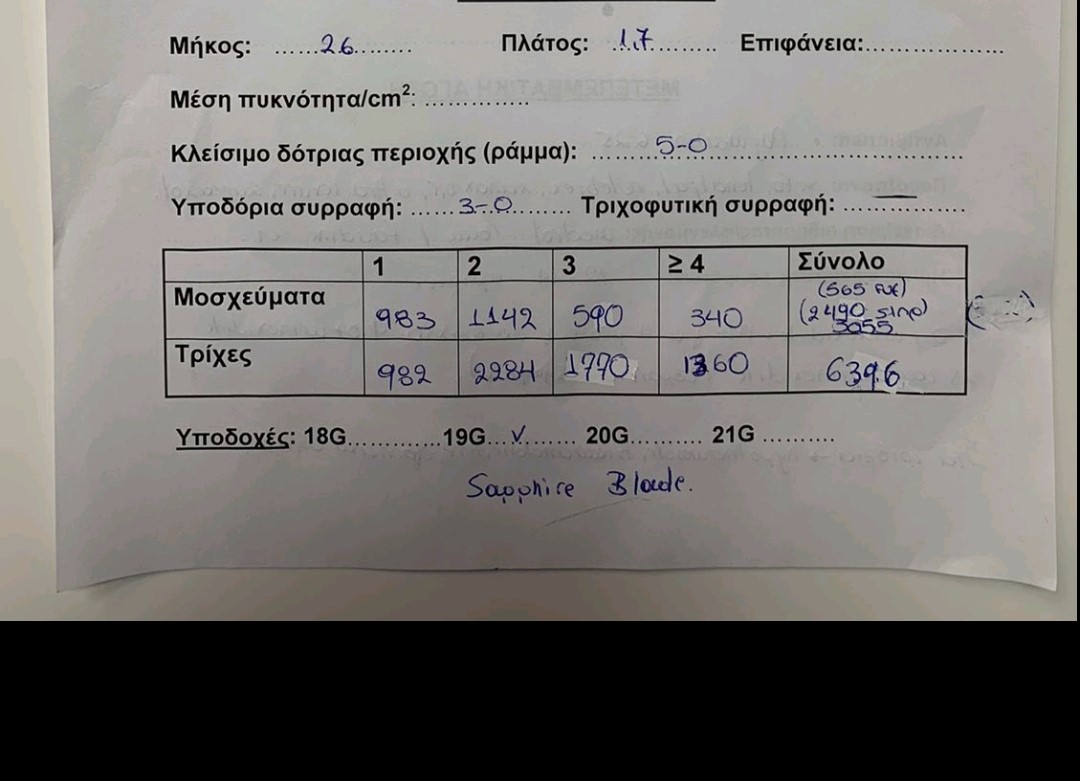 Μήκος: ......26........ Πλάτος: .1.7.......... Επιφάνεια:.....................
Μέση πυκνότητα/cm²: ..............
Κλείσιμο δότριας περιοχής (ράμμα): .........5-0....................................
Υποδόρια συρραφή: ......3-0......... Τριχοφυτική συρραφή: ....—.............
1 2 3 ≥ 4 Σύνολο
Μοσχεύματα 983 1142 590 340 (565 FUE)
(2490 strip)
3055
Τρίχες 982 2284 1770 1360 6396
Υποδοχές: 18G.............19G...✓........ 20G.......... 21G ..........
Sapphire Blade.